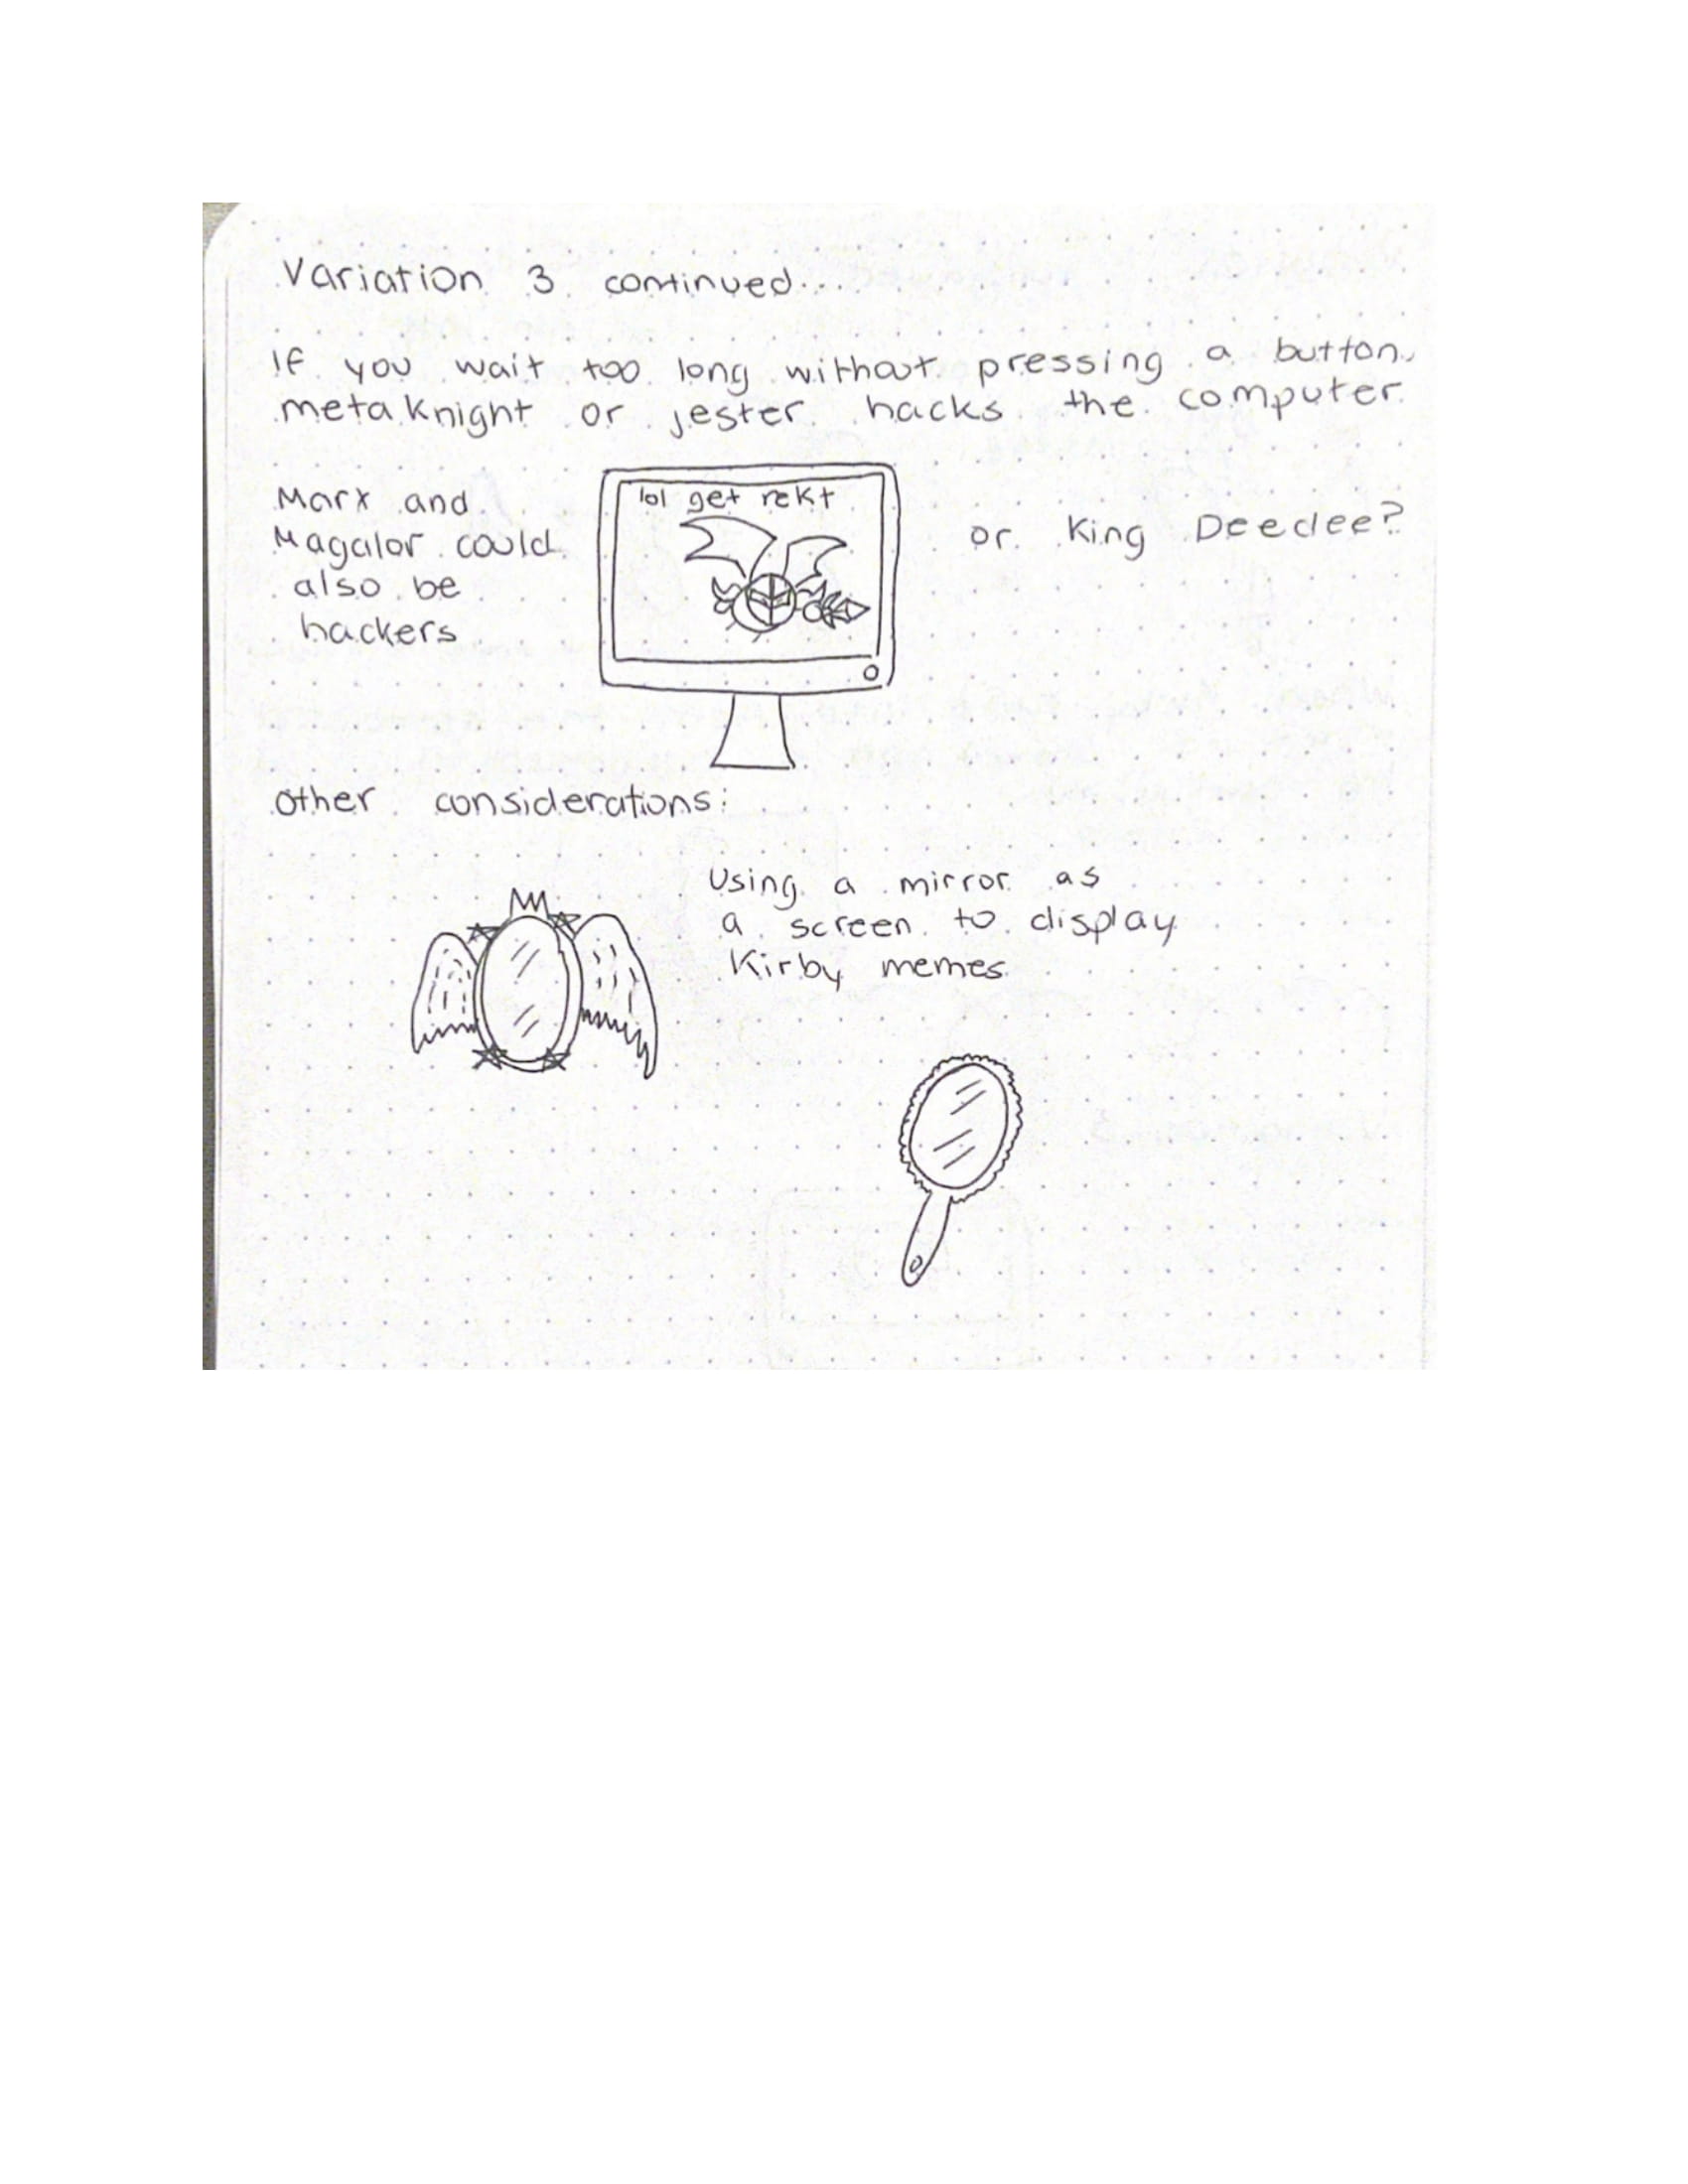 Variation 3 continued...
If you wait too long without pressing a button,
metaknight or jester hacks the computer
Marx and
Magalor could
also be
hackers
lol get rekt
or King Deedee?
other considerations:
Using a mirror as
a screen to display
Kirby memes